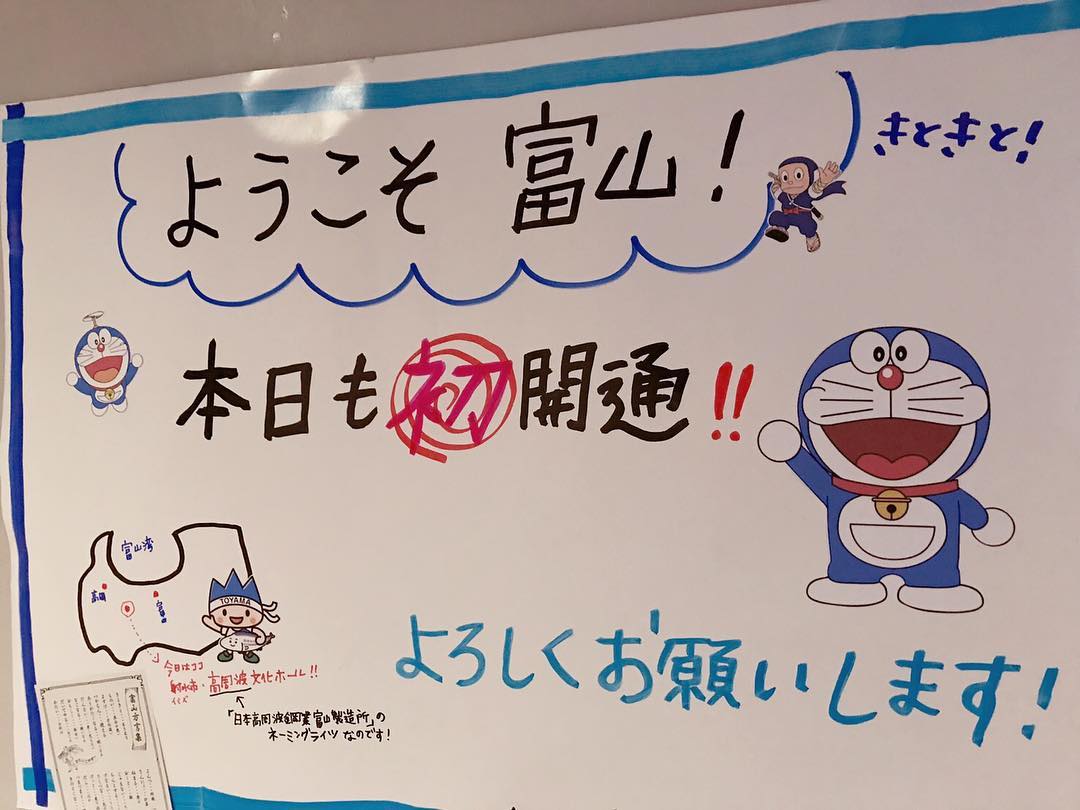 ようこそ 富山!
きときと!
本日も初開通!!
富山湾
高岡
富山
TOYAMA
今日はココ
射水市・高周波文化ホール!!
イミズ
「日本高周波鋼業富山製造所」の
ネーミングライツ なのです!
よろしくお願いします!
富山方言集